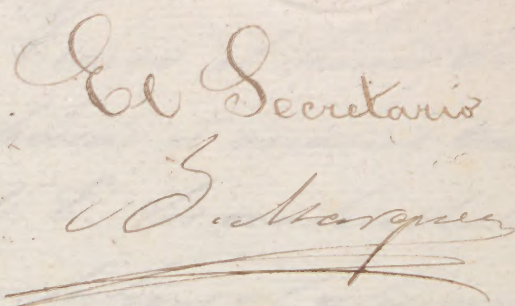 El Secretario
B. Marquez